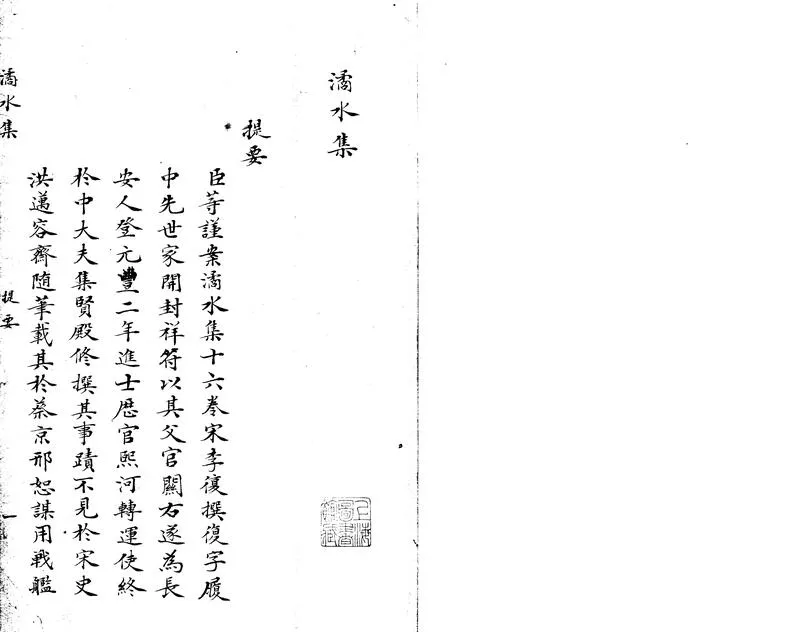 潏水集
提要
臣等謹案潏水集十六卷宋李復撰復字履
中先世家開封祥符以其父官關右遂為長
安人登元豐二年進士歴官熙河轉運使終
於中大夫集賢殿修撰其事蹟不見於宋史
洪邁容齋隨筆載其於蔡京邢恕謀用戰艦
潏水集
提要
一